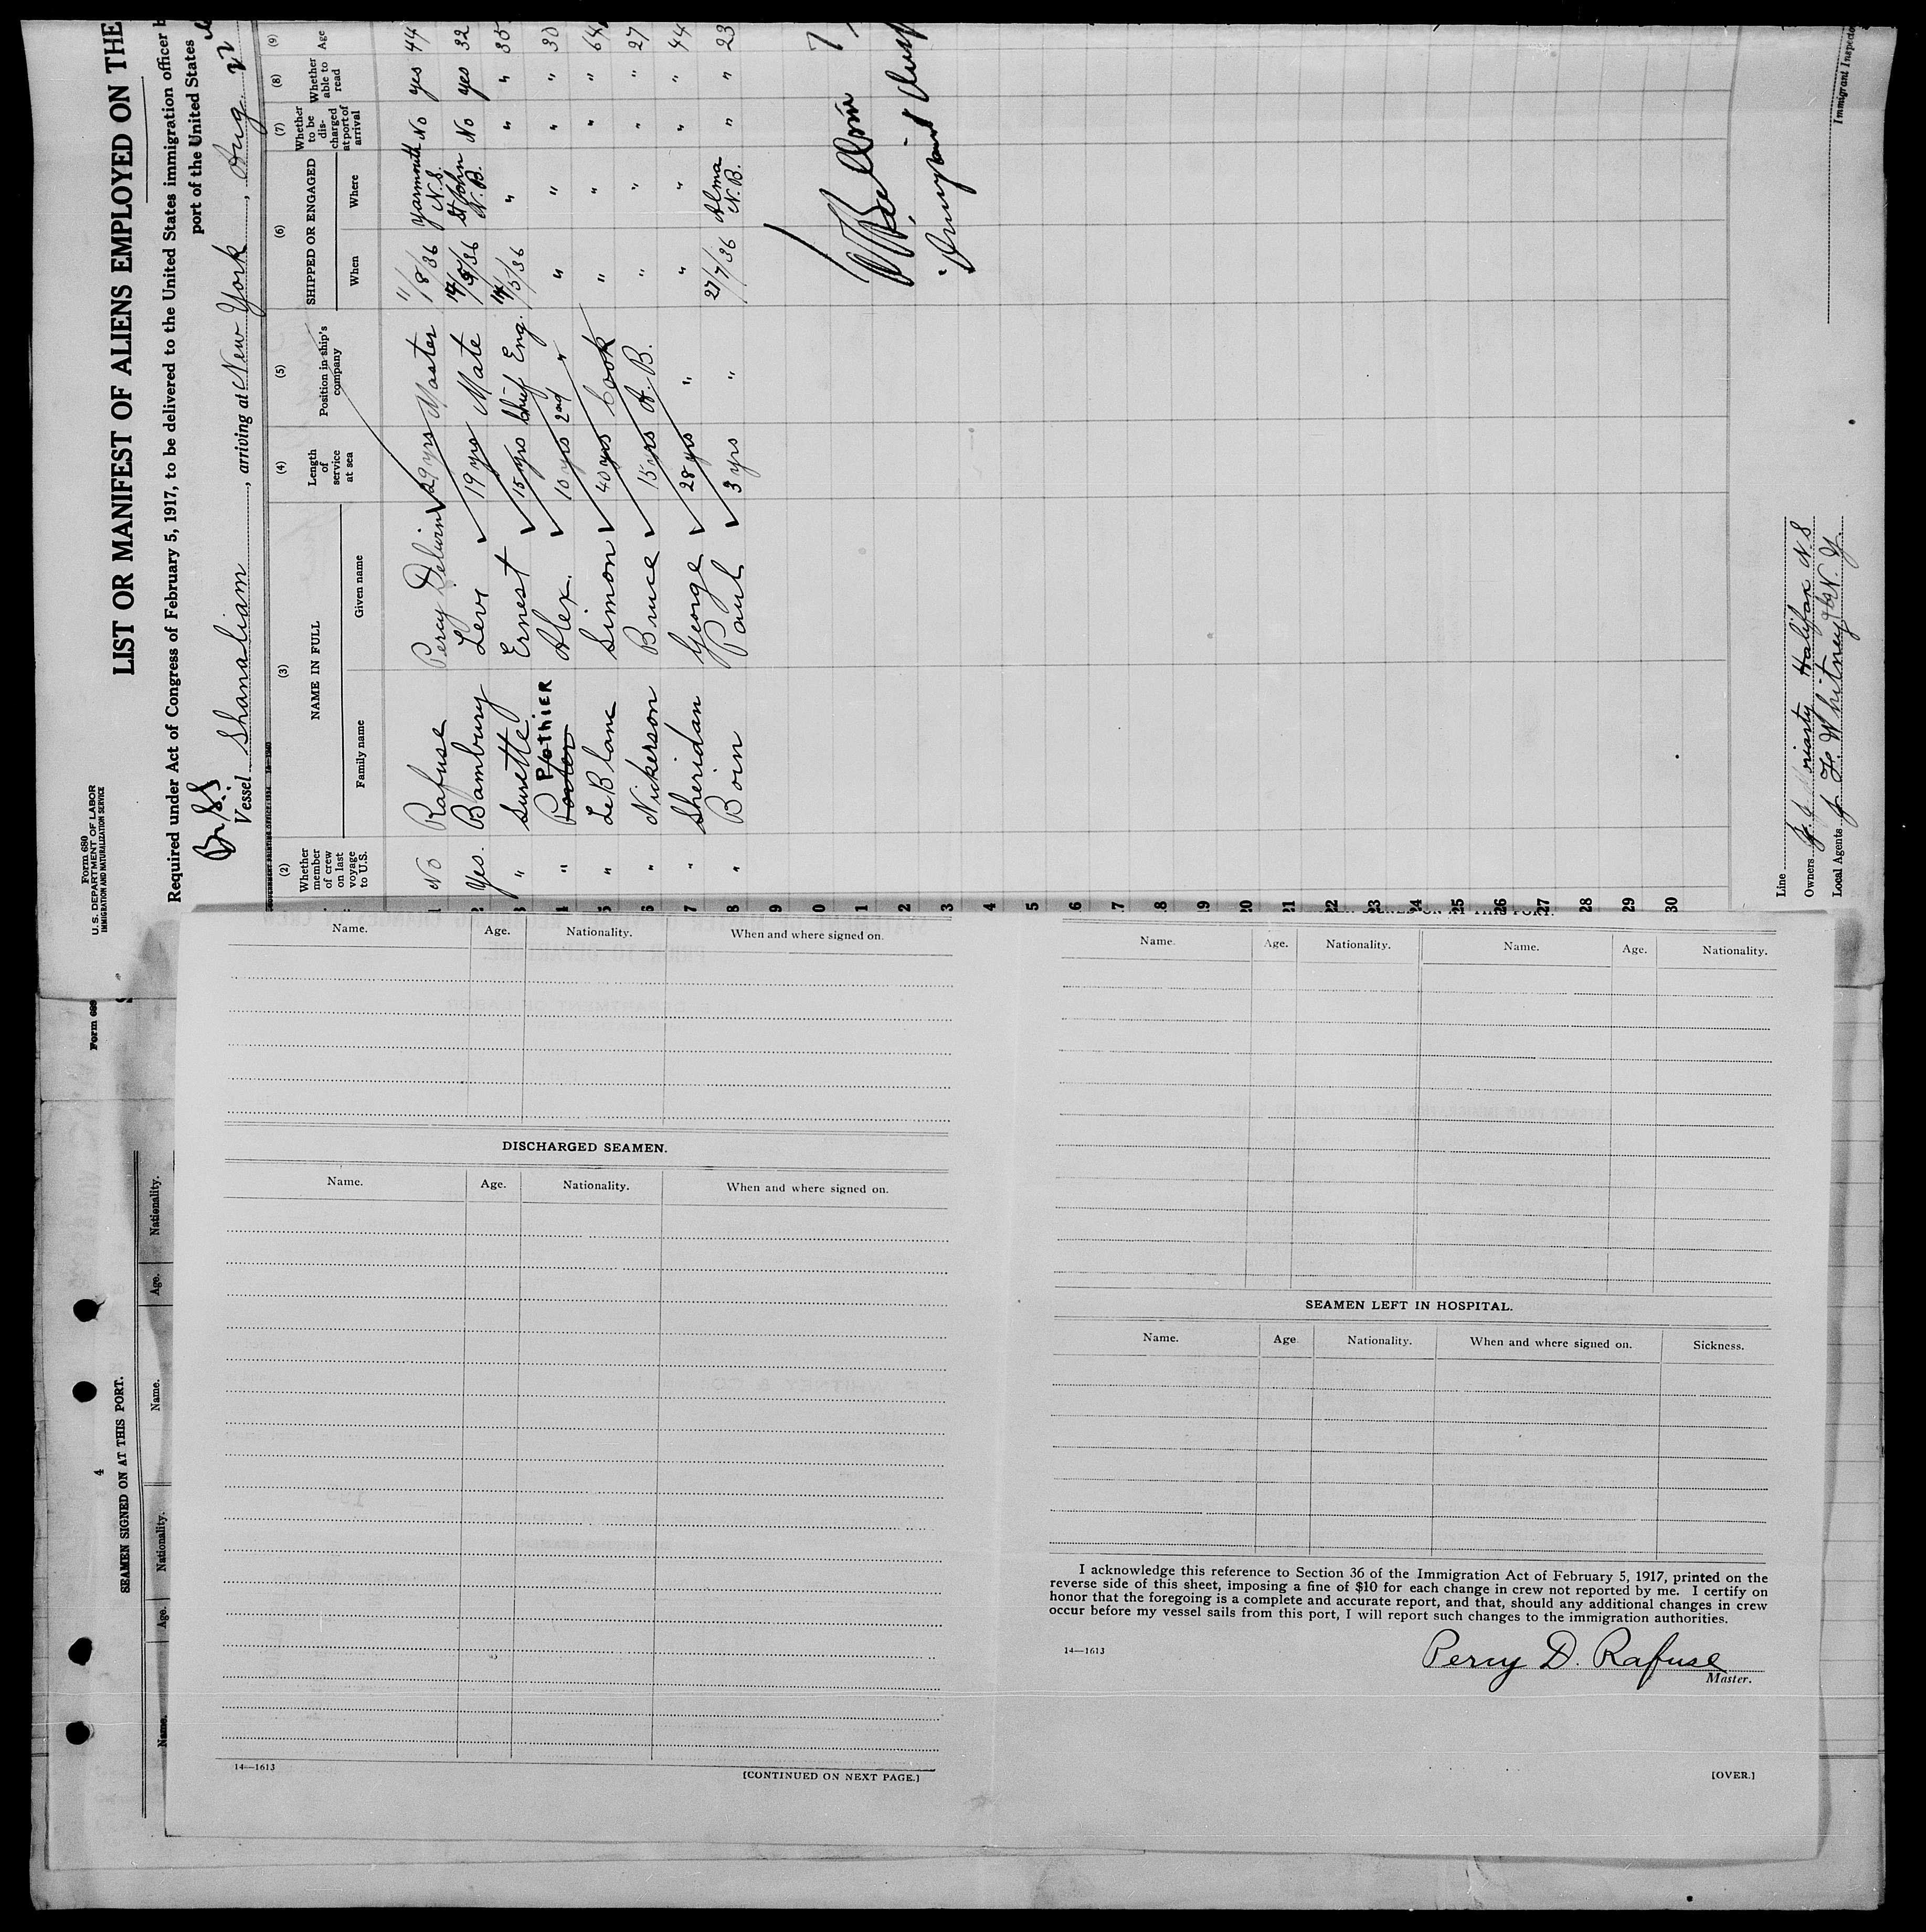 Form 680
U. S. DEPARTMENT OF LABOR
IMMIGRATION AND NATURALIZATION SERVICE
LIST OR MANIFEST OF ALIENS EMPLOYED ON THE
Required under Act of Congress of February 5, 1917, to be delivered to the United States immigration officer
port of the United States
Br S.S
Vessel Shanaliam, arriving at New York, Aug.
(2) (3) (4) (5) (6) (7) (8) (9)
Whether member of crew on last voyage to U.S.
NAME IN FULL
Family name Given name
Length of service at sea
Position in ship's company
SHIPPED OR ENGAGED
When Where
Whether to be discharged at port of arrival
Whether able to read
Age
1 No Rafuse Percy Delwin 29 yrs Master 11/8/36 Yarmouth N.S. No yes 44
2 Yes. Bambury Levi 19 yrs Mate St John N.B. No yes 32
3 " Surette Ernest 15 yrs Chief Eng. 14/5/36 " " "
4 " Porter Pothier Alex. 10 yrs 2nd " " " " " 30
5 " LeBlanc Simon 40 yrs Cook " " " " 64
6 " Nickerson Bruce 15 yrs A.B. " " " " 27
7 " Sheridan George 28 yrs " " " " " 44
8 " Boin Paul 3 yrs " 27/7/36 Alma N.B. " " 23
9
0
1
2
3
4
5
6
7
8
19
20
21
22
23
24
25
26
27
28
29
30
Line
Owners Halifax N.S
Local Agents J. F. Whitney & Co N.Y.
Immigrant Inspector
Form 689
4
SEAMEN SIGNED ON AT THIS PORT.
Name. Age. Nationality. Name. Age. Nationality.
Name. Age. Nationality. When and where signed on.
DISCHARGED SEAMEN.
Name. Age. Nationality. When and where signed on.
14—1613
[CONTINUED ON NEXT PAGE.]
Name. Age. Nationality. Name. Age. Nationality.
SEAMEN LEFT IN HOSPITAL.
Name. Age Nationality. When and where signed on. Sickness.
I acknowledge this reference to Section 36 of the Immigration Act of February 5, 1917, printed on the
reverse side of this sheet, imposing a fine of $10 for each change in crew not reported by me. I certify on
honor that the foregoing is a complete and accurate report, and that, should any additional changes in crew
occur before my vessel sails from this port, I will report such changes to the immigration authorities.
14—1613
Percy D. Rafuse
Master.
[OVER.]